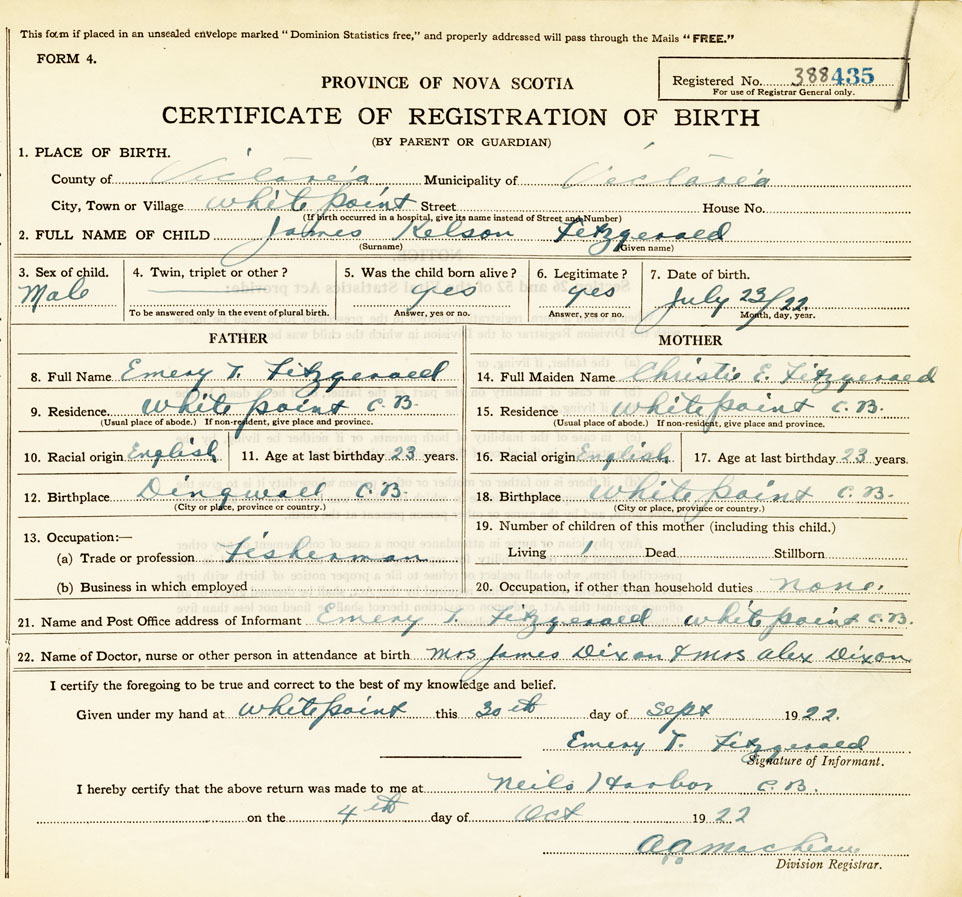 This form if placed in an unsealed envelope marked "Dominion Statistics free," and properly addressed will pass through the Mails "FREE."
FORM 4.
Registered No. 388435
For use of Registrar General only.
PROVINCE OF NOVA SCOTIA
CERTIFICATE OF REGISTRATION OF BIRTH
(BY PARENT OR GUARDIAN)
1. PLACE OF BIRTH.
County of Victoria Municipality of Victoria
City, Town or Village White point Street House No.
(If birth occurred in a hospital, give its name instead of Street and Number)
2. FULL NAME OF CHILD James Kelson Fitzgerald
(Surname) (Given name)
3. Sex of child. 4. Twin, triplet or other? 5. Was the child born alive? 6. Legitimate? 7. Date of birth.
Male yes yes July 23/22
To be answered only in the event of plural birth. Answer, yes or no. Answer, yes or no. Month, day, year.
FATHER MOTHER
8. Full Name Emery T. Fitzgerald 14. Full Maiden Name Christie E. Fitzgerald
9. Residence White point C.B. 15. Residence White point C.B.
(Usual place of abode.) If non-resident, give place and province. (Usual place of abode.) If non-resident, give place and province.
10. Racial origin English 11. Age at last birthday 23 years. 16. Racial origin English 17. Age at last birthday 23 years.
12. Birthplace Dingwall C.B. 18. Birthplace White point C.B.
(City or place, province or country.) (City or place, province or country.)
13. Occupation:— 19. Number of children of this mother (including this child.)
(a) Trade or profession Fisherman Living 1 Dead Stillborn
(b) Business in which employed 20. Occupation, if other than household duties none.
21. Name and Post Office address of Informant Emery T. Fitzgerald White point C.B.
22. Name of Doctor, nurse or other person in attendance at birth Mrs James Dixon & Mrs Alex Dixon
I certify the foregoing to be true and correct to the best of my knowledge and belief.
Given under my hand at White point this 30th day of Sept 1922.
Emery T. Fitzgerald
Signature of Informant.
I hereby certify that the above return was made to me at Neils Harbor C.B.
on the 4th day of Oct 1922
Division Registrar.